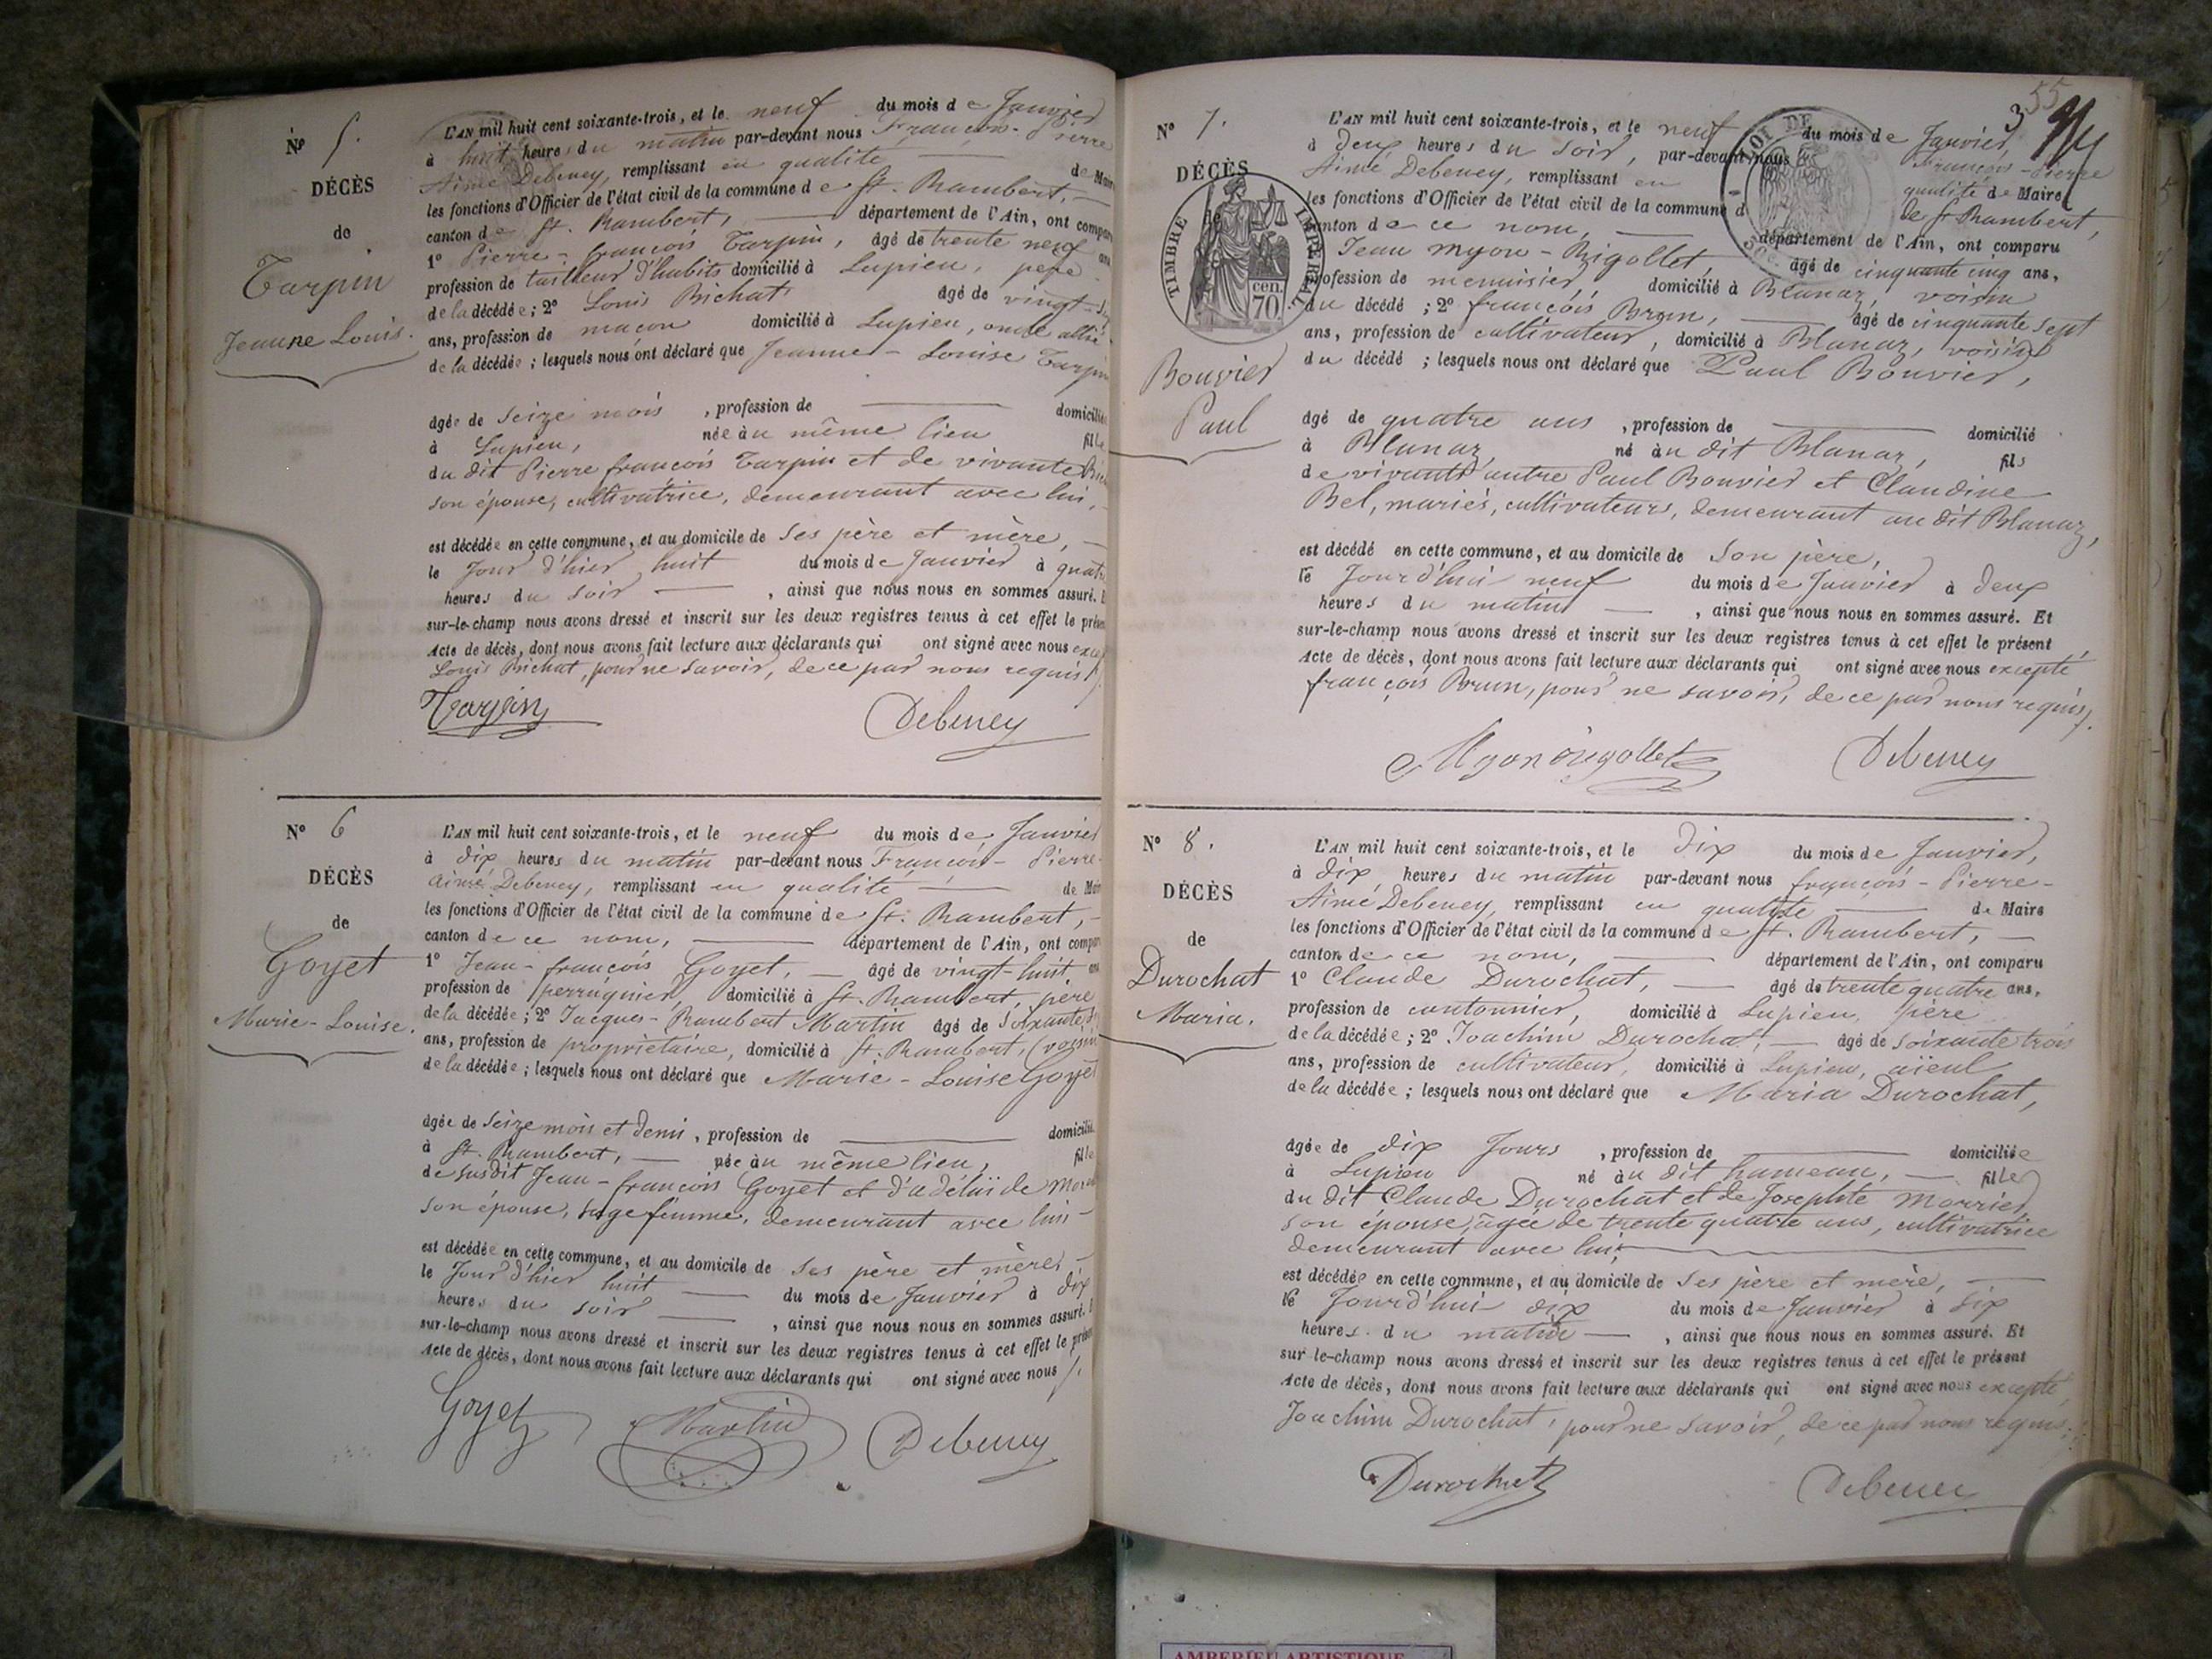 N° 5.
DÉCÈS
de
Tarpin
Jeanne Louise.
L'AN mil huit cent soixante-trois, et le neuf du mois de Janvier
à huit heures du matin par-devant nous François-Pierre
Aimé Debeney, remplissant en qualité de Maire
les fonctions d'Officier de l'état civil de la commune de St. Rambert,
canton de St. Rambert, département de l'Ain, ont compar
1° Pierre-françois Tarpin, âgé de trente neuf ans
profession de tailleur d'habits domicilié à Lupieu, père
de la décédée; 2° Louis Bichat âgé de vingt-
ans, profession de maçon domicilié à Lupieu, oncle allié
de la décédée; lesquels nous ont déclaré que Jeanne-Louise Tarpin
âgée de Seize mois, profession de domicilié
à Lupieu, née au même lieu fille
du dit Pierre françois Tarpin et de vivante
son épouse, cultivatrice, demeurant avec lui,
est décédée en cette commune, et au domicile de ses père et mère,
le Jour d'hier huit du mois de Janvier à quatre
heures du soir, ainsi que nous nous en sommes assuré. E
sur-le-champ nous avons dressé et inscrit sur les deux registres tenus à cet effet le présen
Acte de décès, dont nous avons fait lecture aux déclarants qui ont signé avec nous excep
Louis Bichat, pour ne savoir, de ce par nous requis.
Tarpin Debeney
N° 6
DÉCÈS
de
Goyet
Marie-Louise.
L'AN mil huit cent soixante-trois, et le neuf du mois de Janvier
à dix heures du matin par-devant nous François-Pierre-
Aimé Debeney, remplissant en qualité de Maire
les fonctions d'Officier de l'état civil de la commune de St. Rambert,
canton de ce nom, département de l'Ain, ont compar
1° Jean-françois Goyet, âgé de vingt-huit ans
profession de perruquier, domicilié à St. Rambert, père
de la décédée; 2° Jacques-Rambert Martin âgé de soixante
ans, profession de propriétaire, domicilié à St. Rambert, (voisin
de la décédée; lesquels nous ont déclaré que Marie-Louise Goyet
âgée de Seize mois et demi, profession de domicilié
à St. Rambert, née au même lieu, fille
de susdit Jean-françois Goyet et d'adélaïde
son épouse, sage femme, demeurant avec lui
est décédée en cette commune, et au domicile de ses père et mère,
le Jour d'hier huit du mois de Janvier à dix
heures du soir, ainsi que nous nous en sommes assuré. E
sur-le-champ nous avons dressé et inscrit sur les deux registres tenus à cet effet le présen
Acte de décès, dont nous avons fait lecture aux déclarants qui ont signé avec nous
Goyet Martin Debeney
55
3
N° 7.
DÉCÈS
de
TIMBRE IMPÉRIAL
70 cen.
Bouvier
Paul
L'AN mil huit cent soixante-trois, et le neuf du mois de Janvier,
à deux heures du soir, par-devant nous François-Pierre
Aimé Debeney, remplissant en qualité de Maire
les fonctions d'Officier de l'état civil de la commune de St Rambert,
canton de ce nom, département de l'Ain, ont comparu
Jean Myon-Rigollet, âgé de cinquante cinq ans,
profession de menuisier, domicilié à Blanaz, voisin
du décédé; 2° françois Brun, âgé de cinquante sept
ans, profession de cultivateur, domicilié à Blanaz, voisin
du décédé; lesquels nous ont déclaré que Paul Bouvier,
âgé de quatre ans, profession de domicilié
à Blanaz, né au dit Blanaz, fils
de vivants autre Paul Bouvier et Claudine
Bel, mariés, cultivateurs, demeurant au dit Blanaz,
est décédé en cette commune, et au domicile de son père,
le Jourd'hui neuf du mois de Janvier à deux
heures du matin, ainsi que nous nous en sommes assuré. Et
sur-le-champ nous avons dressé et inscrit sur les deux registres tenus à cet effet le présent
Acte de décès, dont nous avons fait lecture aux déclarants qui ont signé avec nous excepté
françois Brun, pour ne savoir, de ce par nous requis.
Myon Rigollet Debeney
N° 8.
DÉCÈS
de
Durochat
Maria.
L'AN mil huit cent soixante-trois, et le dix du mois de Janvier,
à dix heures du matin par-devant nous françois-Pierre-
Aimé Debeney, remplissant en qualité de Maire
les fonctions d'Officier de l'état civil de la commune de St. Rambert,
canton de ce nom, département de l'Ain, ont comparu
1° Claude Durochat, âgé de trente quatre ans,
profession de cantonnier, domicilié à Lupieu, père
de la décédée; 2° Joachim Durochat, âgé de soixante trois
ans, profession de cultivateur, domicilié à Lupieu, aïeul
de la décédée; lesquels nous ont déclaré que Maria Durochat,
âgée de dix Jours, profession de domiciliée
à Lupieu né au dit hameau, fille
du dit Claude Durochat et de Josephte Morrier
son épouse, âgée de trente quatre ans, cultivatrice
demeurant avec lui,
est décédée en cette commune, et au domicile de ses père et mère,
le Jourd'hui dix du mois de Janvier à six
heures du matin, ainsi que nous nous en sommes assuré. Et
sur-le-champ nous avons dressé et inscrit sur les deux registres tenus à cet effet le présent
Acte de décès, dont nous avons fait lecture aux déclarants qui ont signé avec nous excepté
Joachim Durochat, pour ne savoir, de ce par nous requis.
Durochat Debeney
AMBERIEU ARTISTIQUE